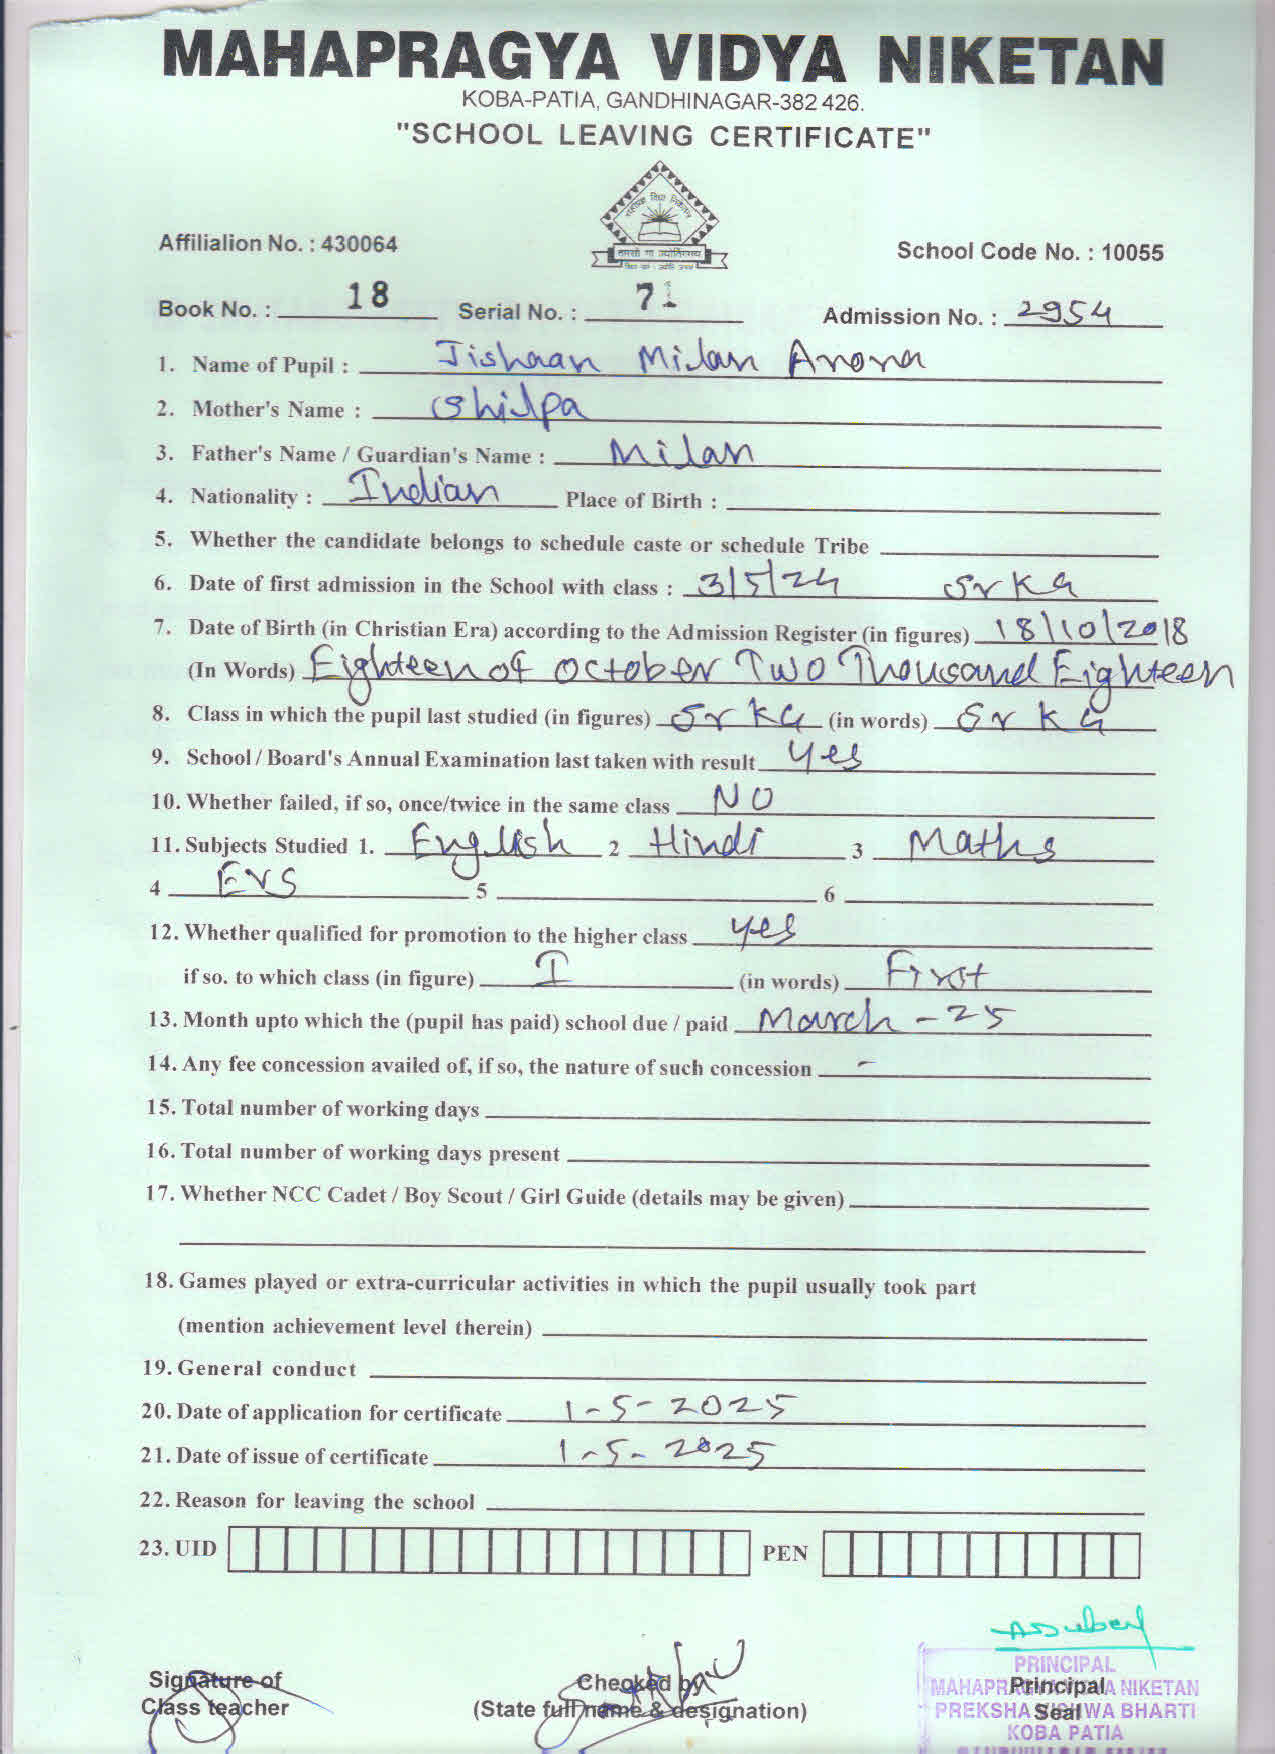 MAHAPRAGYA VIDYA NIKETAN
KOBA-PATIA, GANDHINAGAR-382 426.
"SCHOOL LEAVING CERTIFICATE"
Affilialion No. : 430064
School Code No. : 10055
Book No. : 18 Serial No. : 71 Admission No. : 2954
1. Name of Pupil : Jishaan Milan Arora
2. Mother's Name : Shilpa
3. Father's Name / Guardian's Name : Milan
4. Nationality : Indian Place of Birth :
5. Whether the candidate belongs to schedule caste or schedule Tribe
6. Date of first admission in the School with class : 3/5/24 Sr KG
7. Date of Birth (in Christian Era) according to the Admission Register (in figures) 18/10/2018
(In Words) Eighteen of October Two Thousand Eighteen
8. Class in which the pupil last studied (in figures) Sr KG (in words) Sr KG
9. School / Board's Annual Examination last taken with result yes
10. Whether failed, if so, once/twice in the same class NO
11. Subjects Studied 1. English 2 Hindi 3 Maths
4 EVS 5 6
12. Whether qualified for promotion to the higher class yes
if so. to which class (in figure) I (in words) First
13. Month upto which the (pupil has paid) school due / paid March - 25
14. Any fee concession availed of, if so, the nature of such concession -
15. Total number of working days
16. Total number of working days present
17. Whether NCC Cadet / Boy Scout / Girl Guide (details may be given)
18. Games played or extra-curricular activities in which the pupil usually took part
(mention achievement level therein)
19. General conduct
20. Date of application for certificate 1-5-2025
21. Date of issue of certificate 1-5-2025
22. Reason for leaving the school
23. UID PEN
Signature of
Class teacher
Checked by
(State full name & designation)
Principal
Seal
PRINCIPAL
MAHAPRAGYA VIDYA NIKETAN
PREKSHA VISHWA BHARTI
KOBA PATIA